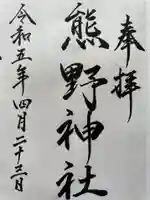 奉拝
熊野神社
令和五年四月二十三日